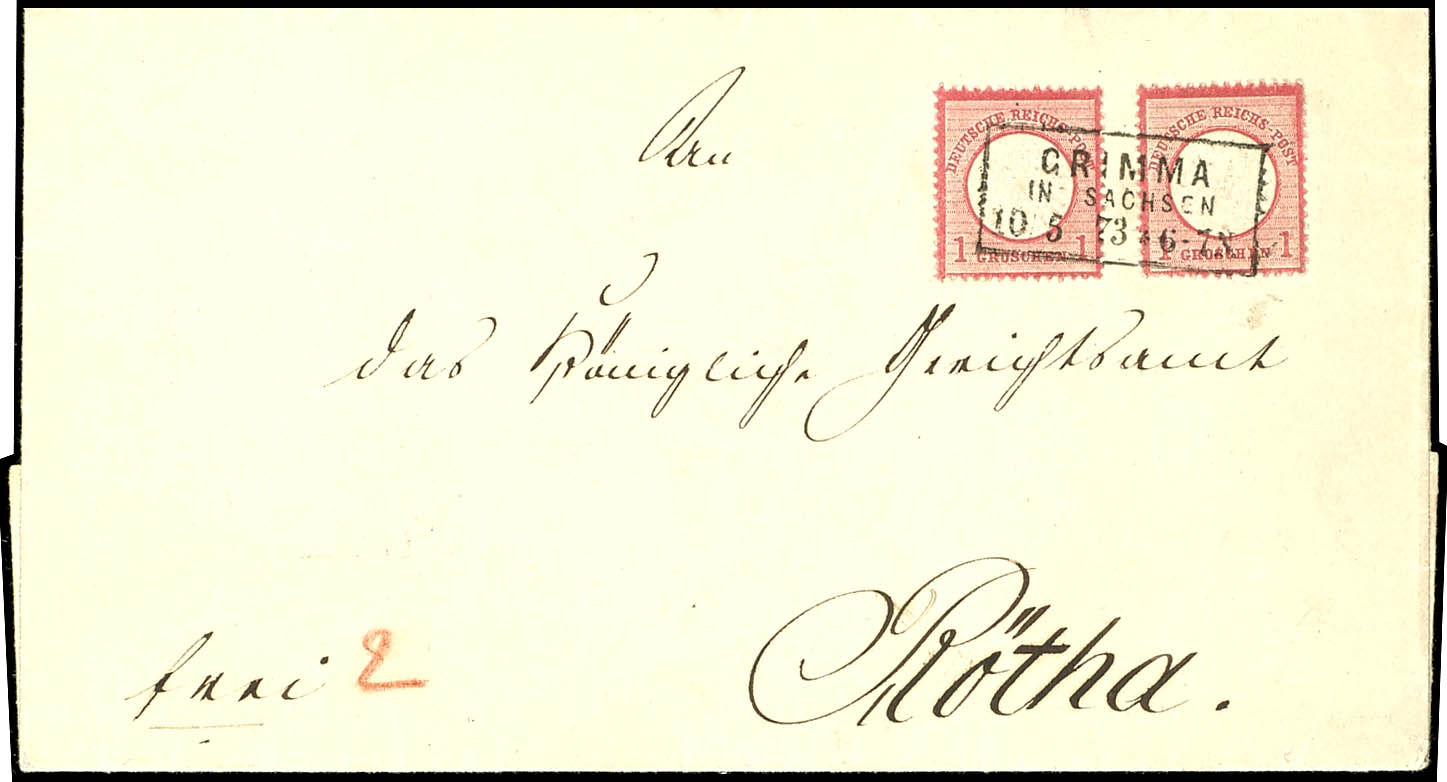 An
DEUTSCHE REICHS-POST
1 GROSCHEN 1
DEUTSCHE REICHS-POST
1 GROSCHEN 1
GRIMMA
IN SACHSEN
10 5 73 * 6-7N
das Königliche Gerichtsamt
frei 2
Rötha.